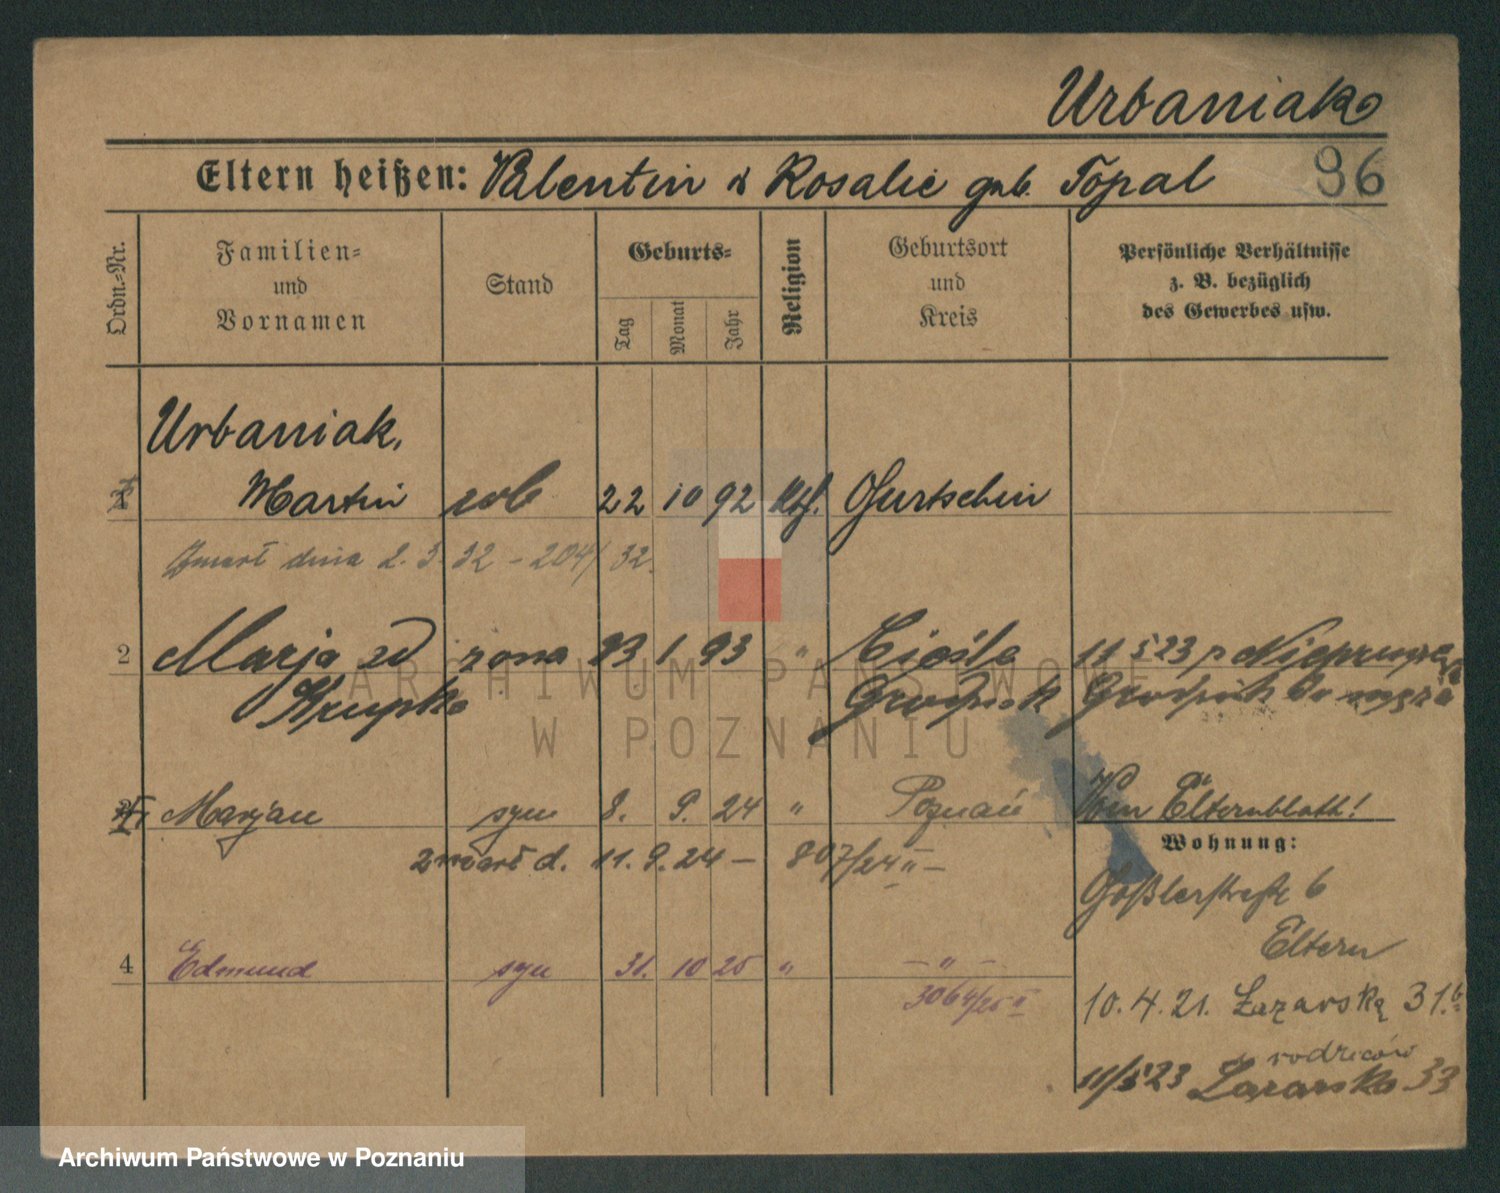 Urbaniak
Eltern heißen: Valentin & Rosalie geb. Topal
96
Ordn.-Nr.
Familien-
und
Vornamen
Stand
Geburts-
Tag
Monat
Jahr
Religion
Geburtsort
und
Kreis
Persönliche Verhältnisse
z. B. bezüglich
des Gewerbes usw.
Urbaniak,
1 Martin 22 10 92 Ktf. Gurtschin
Zmarł dnia 2. 3. 32 - 204/32.
2 Marja zd żona 23 1 93 " Cieśle 11 5 23 p
Krupka Grodzisk Grodzisk
Marjan syn 8. 9. 24 " Poznań Vom Elternblatt!
zmarł d. 11. 9. 24 — 807/24 II —
Wohnung:
Goßlerstraße 6
Eltern
4 Edmund syn 31. 10 25 " — " —
3064/25 II
10. 4. 21. Łazarska 31.
rodziców
11/5 23 Łazarska 33
ARCHIWUM PAŃSTWOWE
W POZNANIU
Archiwum Państwowe w Poznaniu